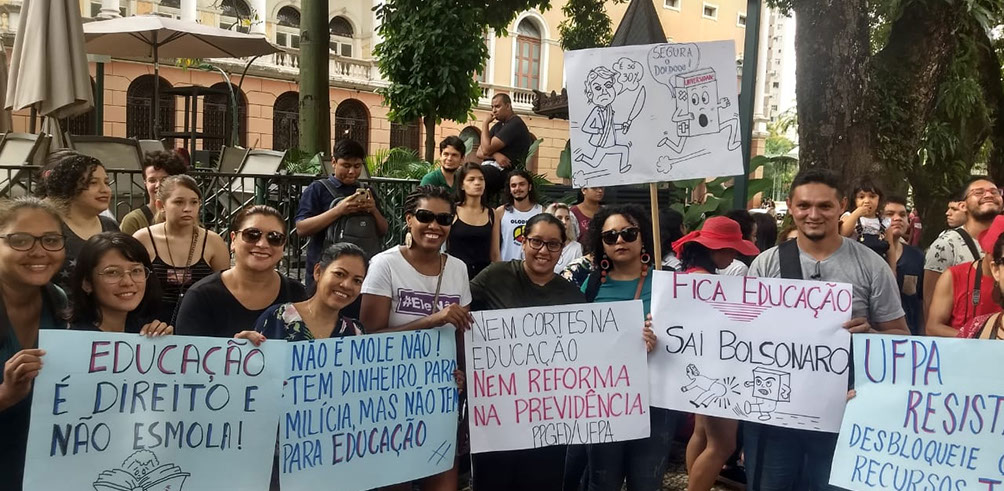 É SÓ
30%
SEGURA
O
DOIDOOO!
UNIVERSIDADE
#EleNão
EDUCAÇÃO
É DIREITO E
NÃO ESMOLA!
NÃO É MOLE NÃO!
TEM DINHEIRO PARA
MILÍCIA, MAS NÃO TEM
PARA EDUCAÇÃO
#
NEM CORTES NA
EDUCAÇÃO
NEM REFORMA
NA PREVIDÊNCIA.
PPGED/UFPA
FICA EDUCAÇÃO
SAI BOLSONARO
UFPA
RESIST
DESBLOQUEIE
RECURSOS